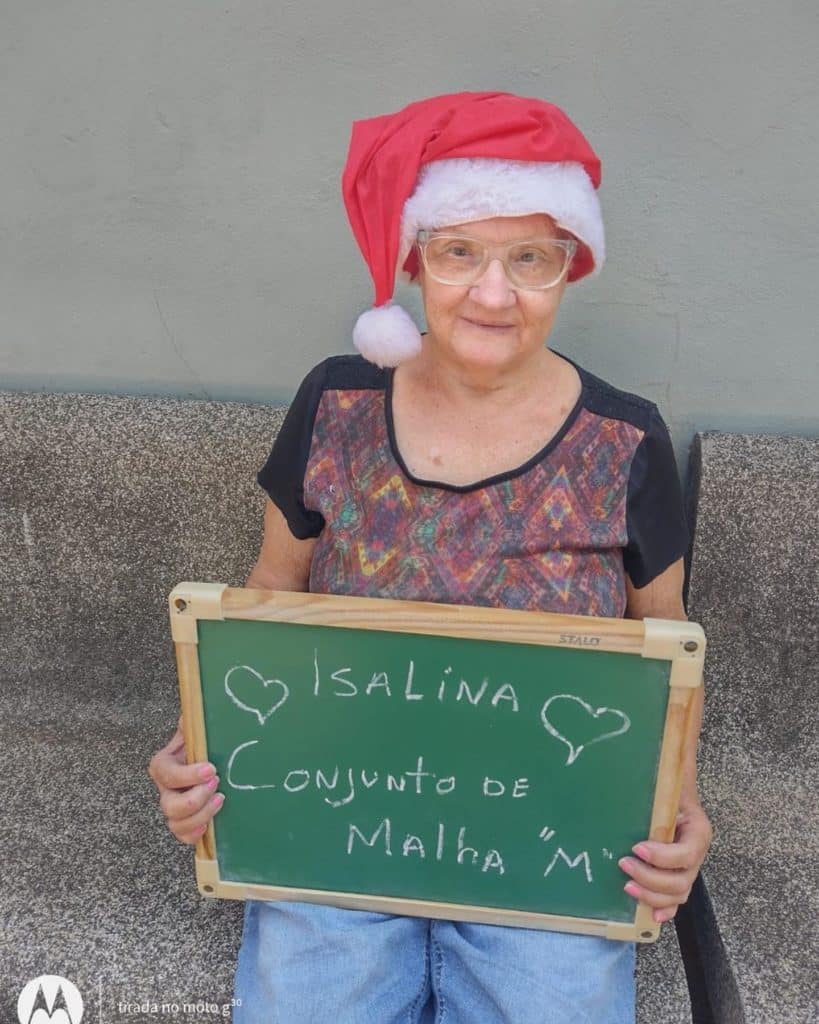 STALO
ISALINA
CONJUNTO DE
MALHA "M"
tirada no moto g³⁰